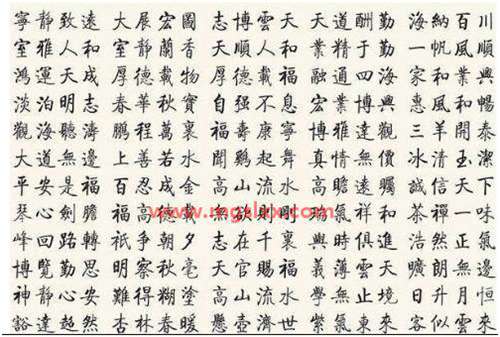 寧靜致遠 大展宏圖 志博雲天 天道酬勤 海納百川
室雅人和 室靜蘭香 大順人和 業精于勤 一帆風順
鴻運天成 厚德載物 厚德載福 融通四海 家和業興
淡泊明志 春華秋實 自强不息 宏業博興 惠風和暢
觀海聽濤 鵬程萬裏 福壽康寧 博雅達觀 三羊開泰
大道無邊 上善若水 聞鷄起舞 真情無價 冰清玉潔
平安是福 百忍成金 高山流水 高瞻遠矚 誠信天下
琴心劍膽 福 載 則剛 瑞氣祥和 茶禪一味
峰回路轉 衹爭朝夕 志在千裏 與時俱進 浩然正氣
博覽勤思 明察秋毫 天官賜福 義薄雲天 曠朗無邊
神静心安 難得糊塗 高山流水 學無止境 日升月恒
豁達超然 杏林春暖 懸壺濟世 紫氣東來 客似雲來